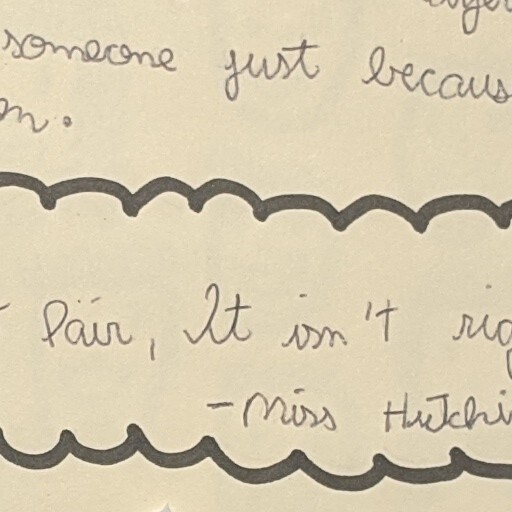 someone just becaus
m.
fair, It isn't rig
-Miss Hutchi